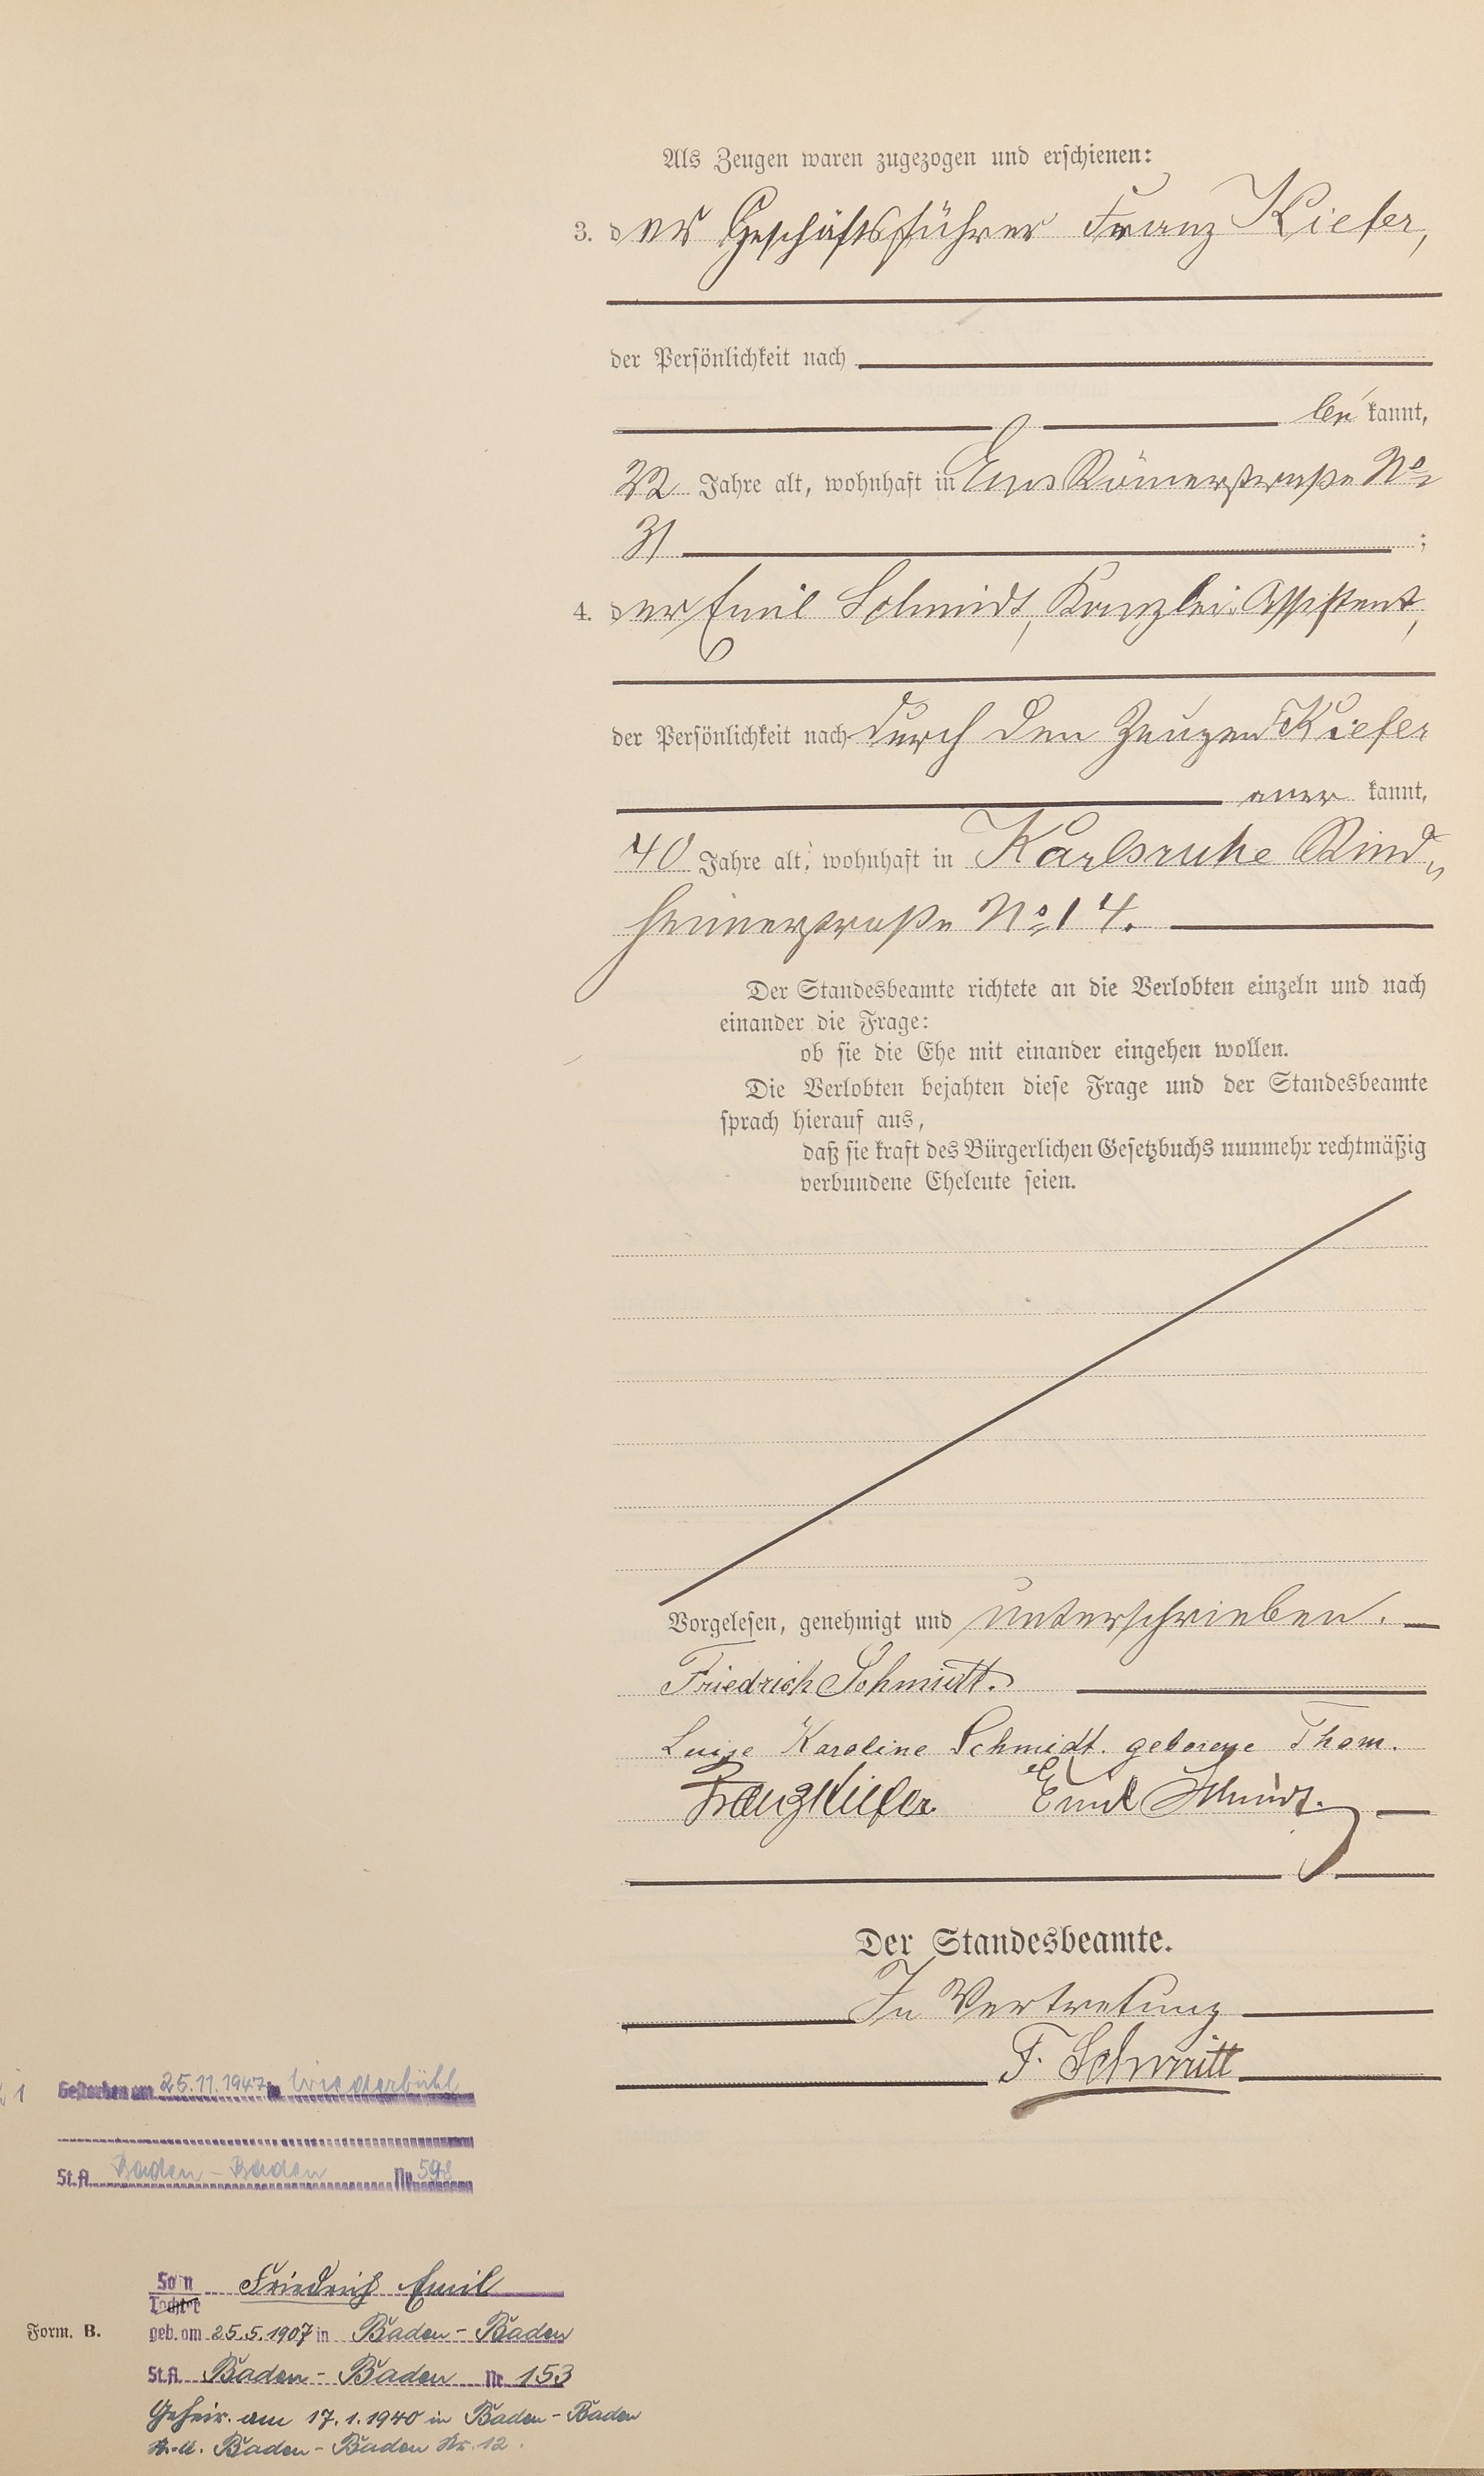 Als Zeugen waren zugezogen und erschienen:
3. der Geschäftsführer Franz Kiefer,
der Persönlichkeit nach
be kannt,
22 Jahre alt, wohnhaft in Ems Römerstraße No
31 ;
4. der Emil Schmidt, Kanzlei-Assistent,
der Persönlichkeit nach durch den Zeugen Kiefer
aner kannt,
40 Jahre alt, wohnhaft in Karlsruhe Rint-
heimerstraße No 14.
Der Standesbeamte richtete an die Verlobten einzeln und nach
einander die Frage:
ob sie die Ehe mit einander eingehen wollen.
Die Verlobten bejahten diese Frage und der Standesbeamte
sprach hierauf aus,
daß sie kraft des Bürgerlichen Gesetzbuchs nunmehr rechtmäßig
verbundene Eheleute seien.
Vorgelesen, genehmigt und unterschrieben.
Friedrich Schmidt.
Luise Karoline Schmidt. geborene Thom.
Franz Kiefer Emil Schmidt.
Der Standesbeamte.
In Vertretung
F. Schmitt
Gestorben am 25.11.1947 in
St.A. Baden-Baden Nr. 598
Sohn Friedrich Emil
Tochter
Form. B. geb. am 25.5.1907 in Baden-Baden
St.A. Baden-Baden Nr. 153
Geheir. am 17.1.1940 in Baden-Baden
Baden-Baden Nr. 12.